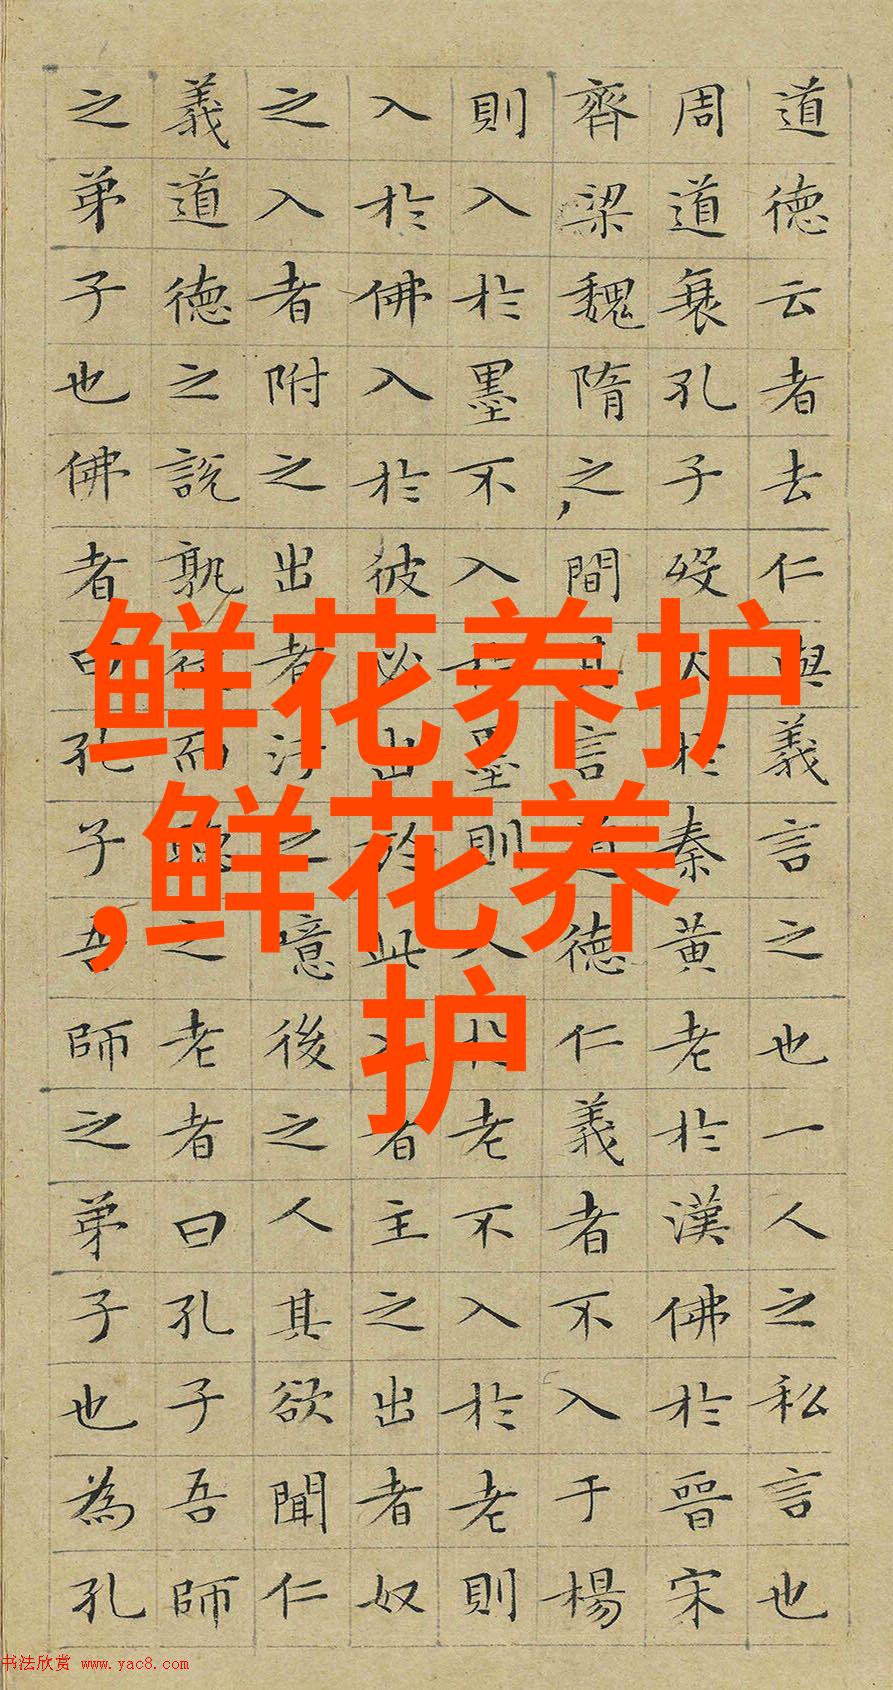 道德云者去仁與義言之也一人之私言也
周道衰孔子歿火於秦黄老於漢佛於晉宋
齊梁魏隋之間其言道德仁義者不入于楊
則入於墨不入於墨則入於老不入於老則
入於佛入於彼必出於此入者主之出者奴
之入者附之出者汙之憶後之人其欲聞仁
義道德之說孰從而聽之老者曰孔子吾師
之弟子也佛者曰孔子吾師之弟子也為孔
鲜花养护
,鲜花养
护
书法欣赏 www.yac8.com